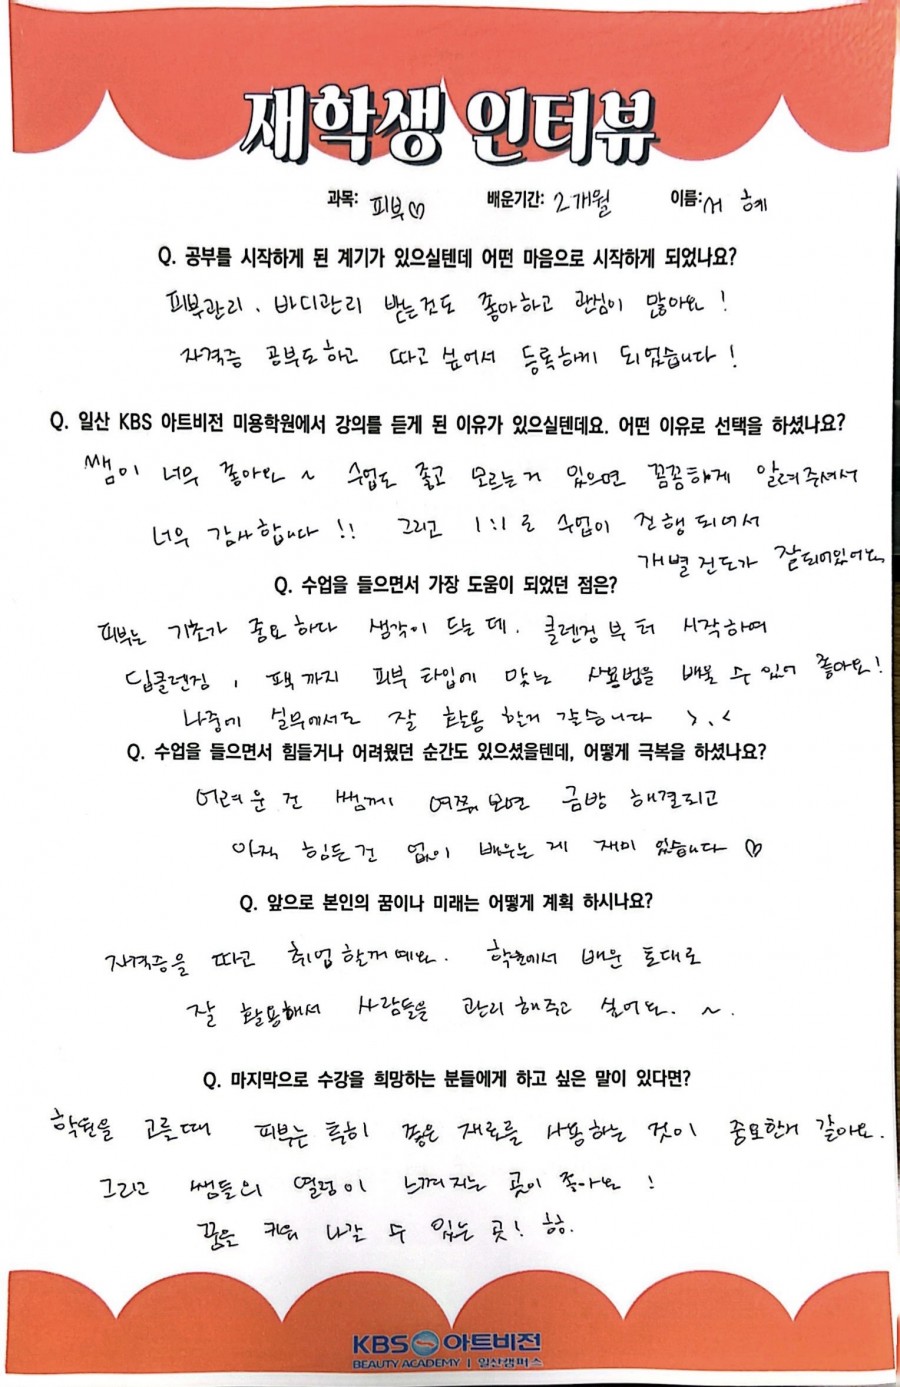 재학생 인터뷰
과목: 피부♡ 배운기간: 2개월 이름: 서 혜
Q. 공부를 시작하게 된 계기가 있으실텐데 어떤 마음으로 시작하게 되었나요?
피부관리, 바디관리 받는것도 좋아하고 관심이 많아요!
자격증 공부도하고 따고 싶어서 등록하게 되었습니다!
Q. 일산 KBS 아트비전 미용학원에서 강의를 듣게 된 이유가 있으실텐데요. 어떤 이유로 선택을 하셨나요?
쌤이 너무 좋아요~ 수업도 좋고 모르는거 있으면 꼼꼼하게 알려주셔서
너무 감사합니다!! 그리고 1:1로 수업이 진행되어서
개별진도가 잘되어있어요.
Q. 수업을 들으면서 가장 도움이 되었던 점은?
피부는 기초가 중요하다 생각이 드는데. 클렌징부터 시작하여
딥클렌징, 팩까지 피부타입에 맞는 사용법을 배울 수 있어 좋아요!
나중에 실무에서도 잘 활용 할거 같습니다 >.<
Q. 수업을 들으면서 힘들거나 어려웠던 순간도 있으셨을텐데, 어떻게 극복을 하셨나요?
어려운건 쌤께 여쭤보면 금방 해결되고
아직 힘든건 없이 배우는게 재미 있습니다♡
Q. 앞으로 본인의 꿈이나 미래는 어떻게 계획 하시나요?
자격증을 따고 취업할꺼예요. 학원에서 배운 토대로
잘 활용해서 사람들을 관리해주고 싶어요.~.
Q. 마지막으로 수강을 희망하는 분들에게 하고 싶은 말이 있다면?
학원을 고를때 피부는 특히 좋은 재료를 사용하는 것이 중요한거 같아요.
그리고 쌤들의 열정이 느껴지는 곳이 좋아요!
꿈을 키워 나갈 수 있는 곳! ㅎㅎ.
KBS 아트비전
BEAUTY ACADEMY | 일산캠퍼스